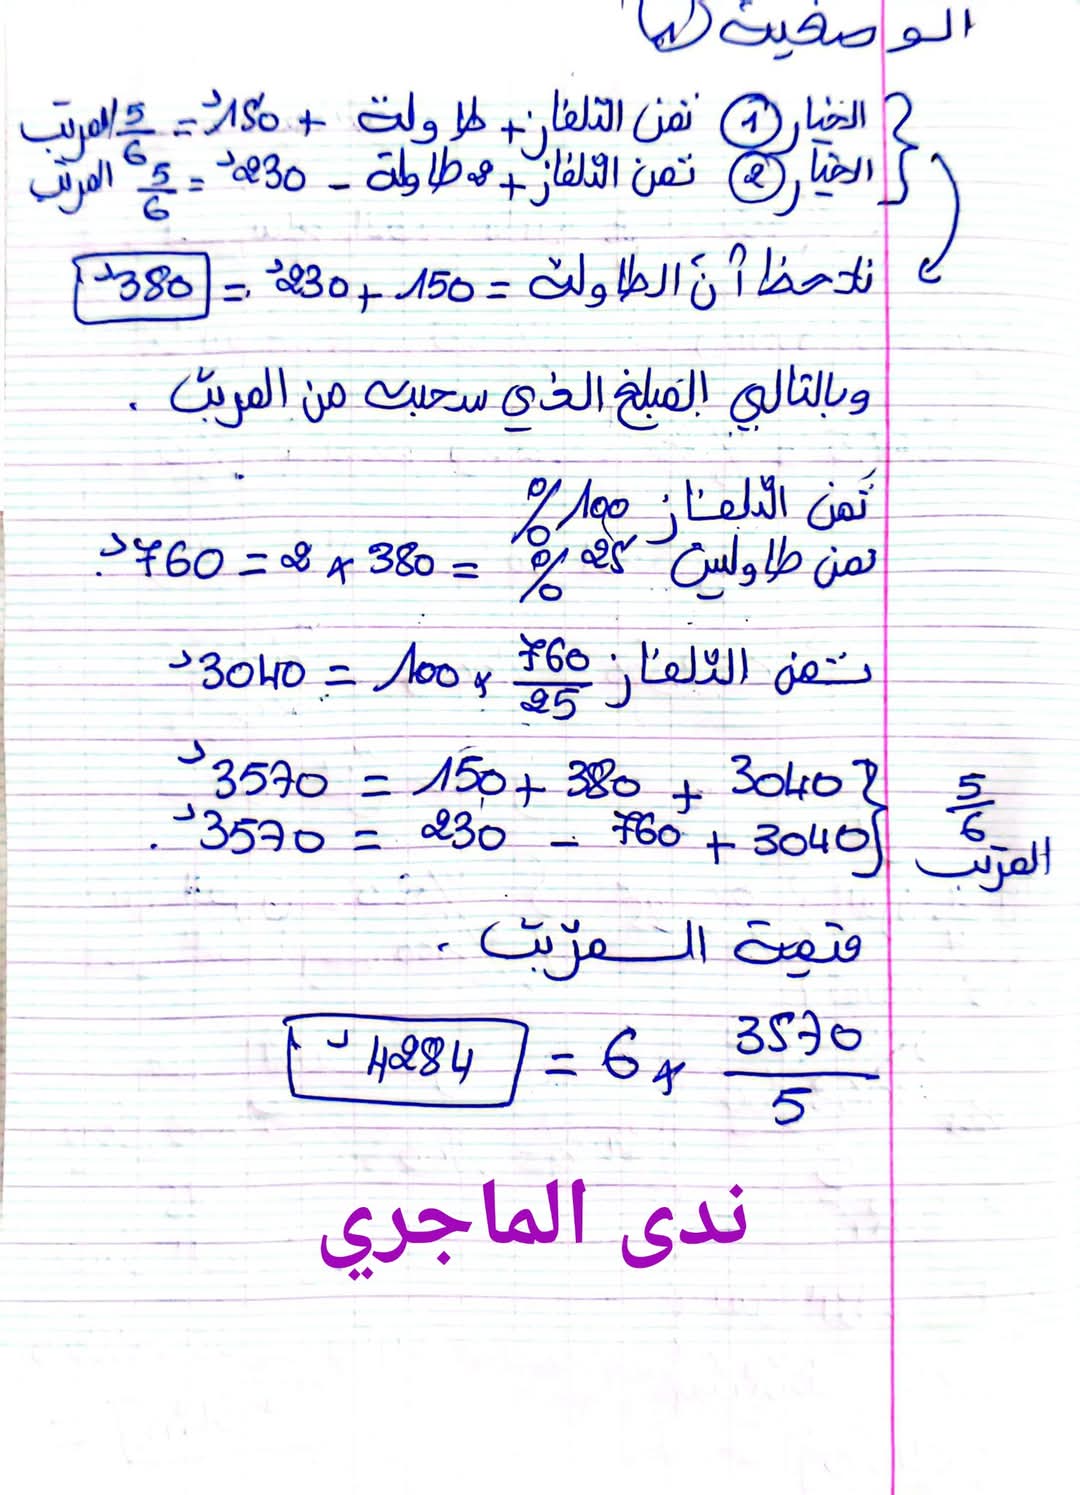 الوضعية (1)
الخيار (1) ثمن التلفاز + طاولة + 150د = 5/6 المرتب
الخيار (2) ثمن التلفاز + 2 طاولة - 230د = 5/6 المرتب
نلاحظ أنّ الطاولة = 150 + 230د = 380د
وبالتالي المبلغ الذي سحبه من المرتب .
ثمن التلفاز 100 %
ثمن طاولتين 25 % = 380 × 2 = 760د.
ثمن التلفاز 760/25 × 100 = 3040د
5/6 المرتب
3040 + 380 + 150 = 3570د
3040 + 760 - 230 = 3570د .
قيمة المرتب .
3570/5 × 6 = 4284د
ندى الماجري